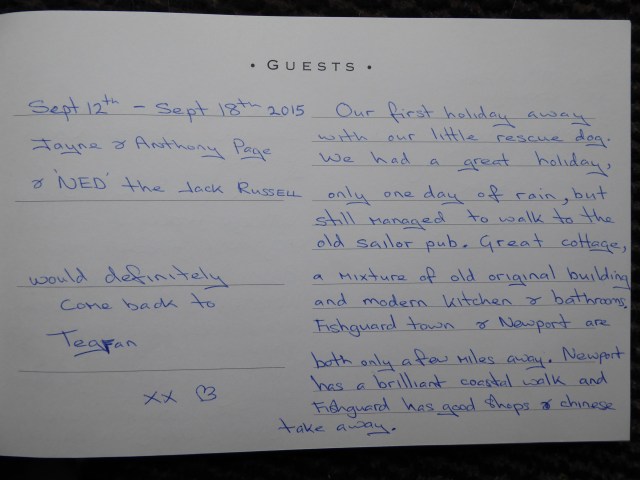 • GUESTS •
Sept 12th - Sept 18th 2015
Jayne & Anthony Page
& 'NED' the Jack RUSSELL
would definitely
come back to
Tegfan
xx ♡
Our first holiday away
with our little rescue dog.
We had a great holiday,
only one day of rain, but
still managed to walk to the
old sailor pub. Great cottage,
a mixture of old original building
and modern kitchen & bathrooms.
Fishguard town & Newport are
both only a few miles away. Newport
has a brilliant coastal walk and
Fishguard has good shops & chinese
take away.